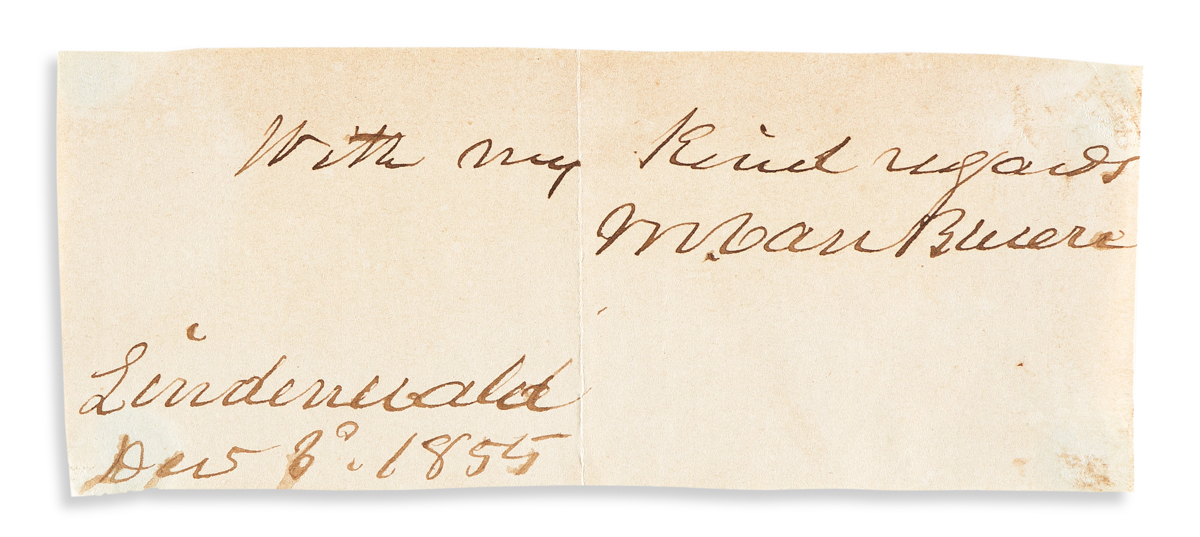 With my Kind regards
M. Van Buren
Lindenwald
1855